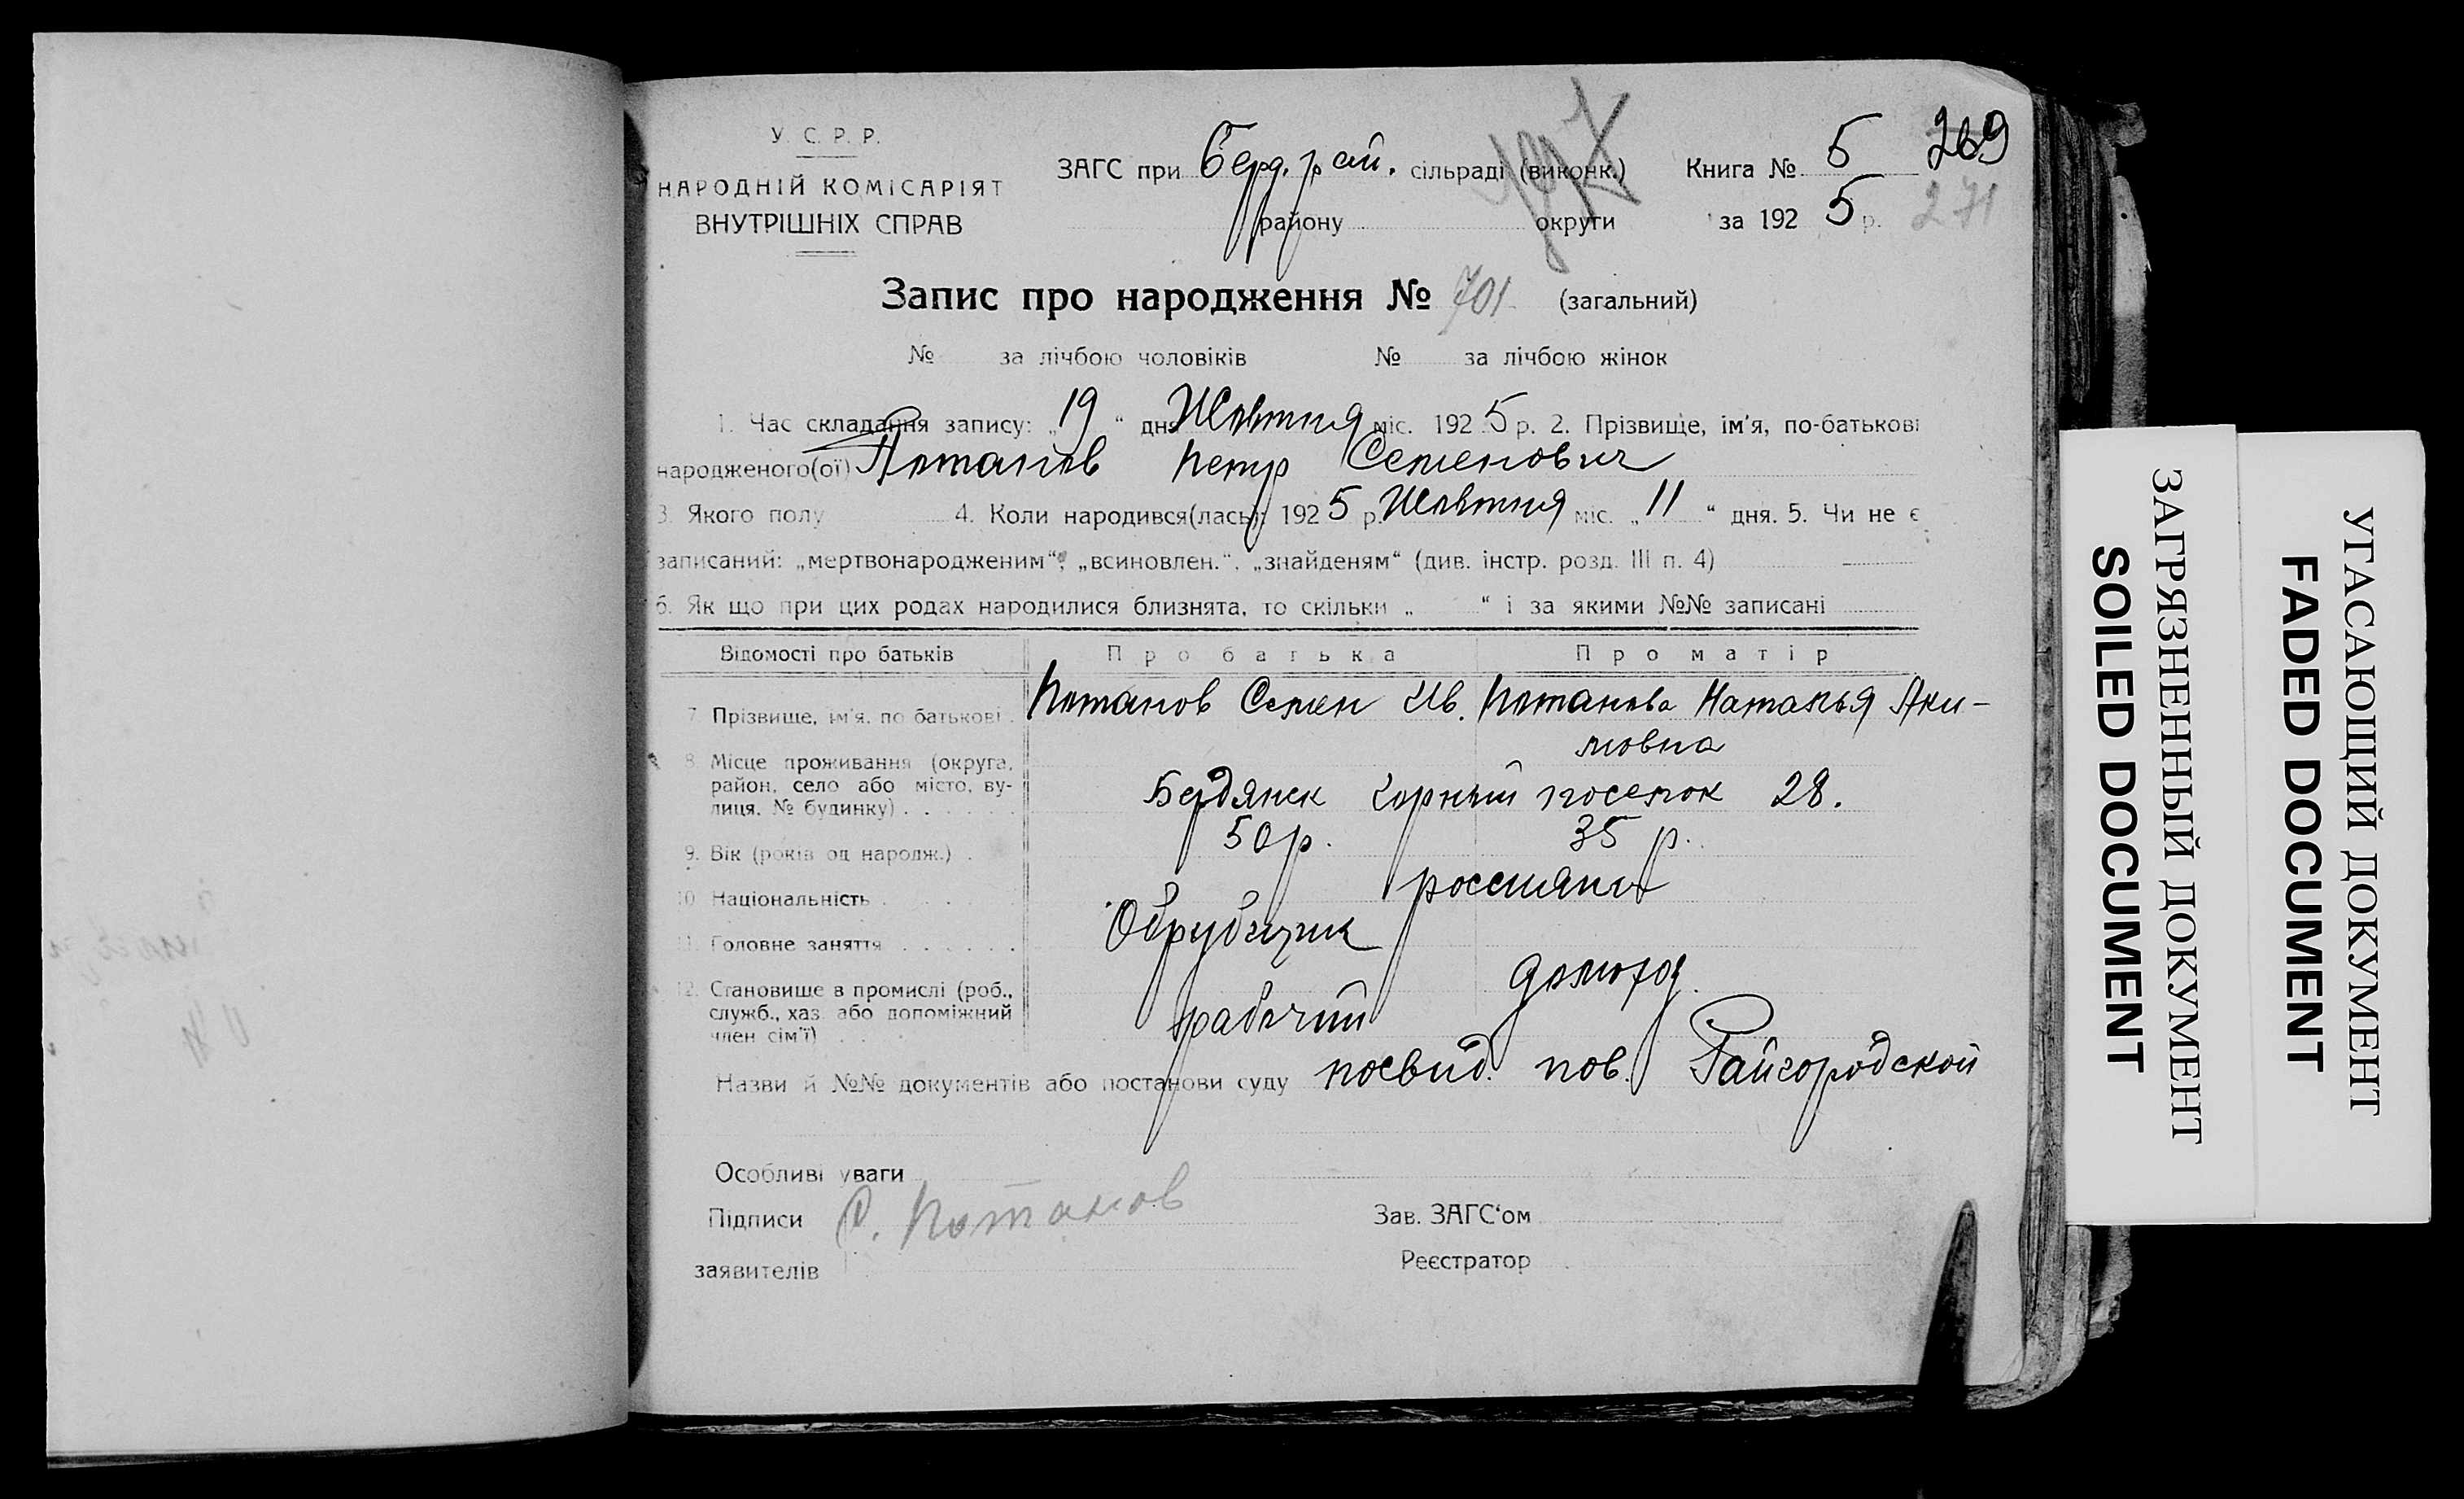 У. С. Р. Р.
НАРОДНІЙ КОМІСАРІЯТ
ВНУТРІШНІХ СПРАВ
ЗАГС при Берд. рай. сільраді (виконк.)
району округи
Книга № 5 269
за 192 5 р. 271
Запис про народження № 701 (загальний)
№ за лічбою чоловіків № за лічбою жінок
1. Час складання запису: „ 19 “ дня Жовтня міс. 192 5 р. 2. Прізвище, ім'я, по-батькові
народженого(ої) Потапов Петр Семенович
3. Якого полу 4. Коли народився(лась): 192 5 р. Жовтня міс. „ 11 “ дня. 5. Чи не є
записаний: „мертвонародженим“, „всиновлен.“, „знайденям“ (див. інстр. розд. III п. 4)
6. Як що при цих родах народилися близнята, то скільки „ “ і за якими №№ записані
Відомості про батьків Про батька Про матір
7. Прізвище, ім'я, по батькові . Потапов Семен Ив. Потапова Наталья Яки-
мовна
8. Місце проживання (округа,
район, село або місто, ву-
лиця, № будинку) . . . . . .
Бердянск Горный поселок 28.
9. Вік (років од народж.) . 50 р. 35 р.
10. Національність . . . . . россияни
11. Головне заняття . . . . . . Обрубщик
12. Становище в промислі (роб.,
служб., хаз. або допоміжний
член сім'ї) . . .
рабочий домохоз.
Назви й №№ документів або постанови суду посвид. пов. Райгородской
Особливі уваги
Підписи С. Потапов Зав. ЗАГС‘ом
заявителів Реєстратор
ЗАГРЯЗНЕННЫЙ ДОКУМЕНТ
SOILED DOCUMENT
УГАСАЮЩИЙ ДОКУМЕНТ
FADED DOCUMENT